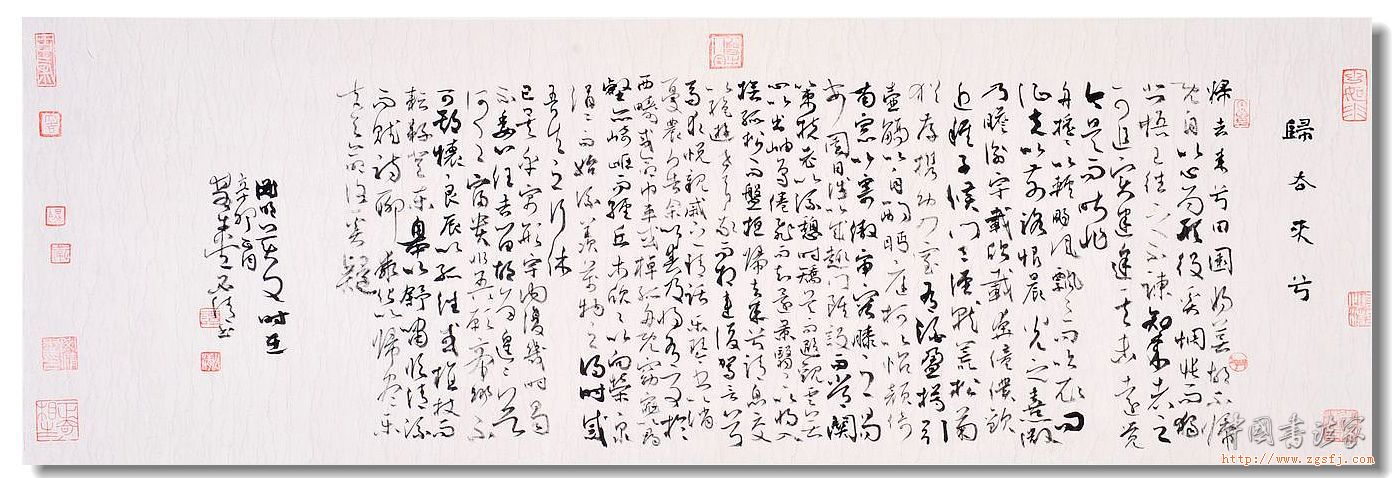 歸去来兮
歸去来兮田園将蕪胡不歸
既自以心為形役奚惆悵而獨
悲悟已往之不諫知来者之
可追實迷途其未遠覺
今是而昨非
舟摇摇以輕颺風飄飄而吹衣問
征夫以前路恨晨光之熹微
乃瞻衡宇載欣載奔僮僕歡
迎稚子候門三徑就荒松菊
猶存携幼入室有酒盈樽引
壺觴以自酌眄庭柯以怡顏倚
南窗以寄傲審容膝之易
安園日涉以成趣門雖設而常關
策扶老以流憩時矯首而遐觀雲無
心以出岫鳥倦飛而知還景翳翳以將入
撫孤松而盤桓歸去来兮請息交
以絕遊世與我而相遺復駕言兮
焉求悅親戚之情話樂琴書以消
憂農人告余以春及將有事於
西疇或命巾車或棹孤舟既窈窕以尋
壑亦崎嶇而經丘木欣欣以向榮泉
涓涓而始流羨萬物之得時感
吾生之行休
已矣乎寓形宇内復幾時曷
不委心任去留胡為遑遑兮欲
何之富貴非吾願帝鄉不
可期懷良辰以孤往或植杖而
耘耔登東皋以舒嘯臨清流
而賦詩聊乘化以歸盡樂
夫天命復奚疑
时在
辛卯
中國书法家
http://www.zgsfj.com